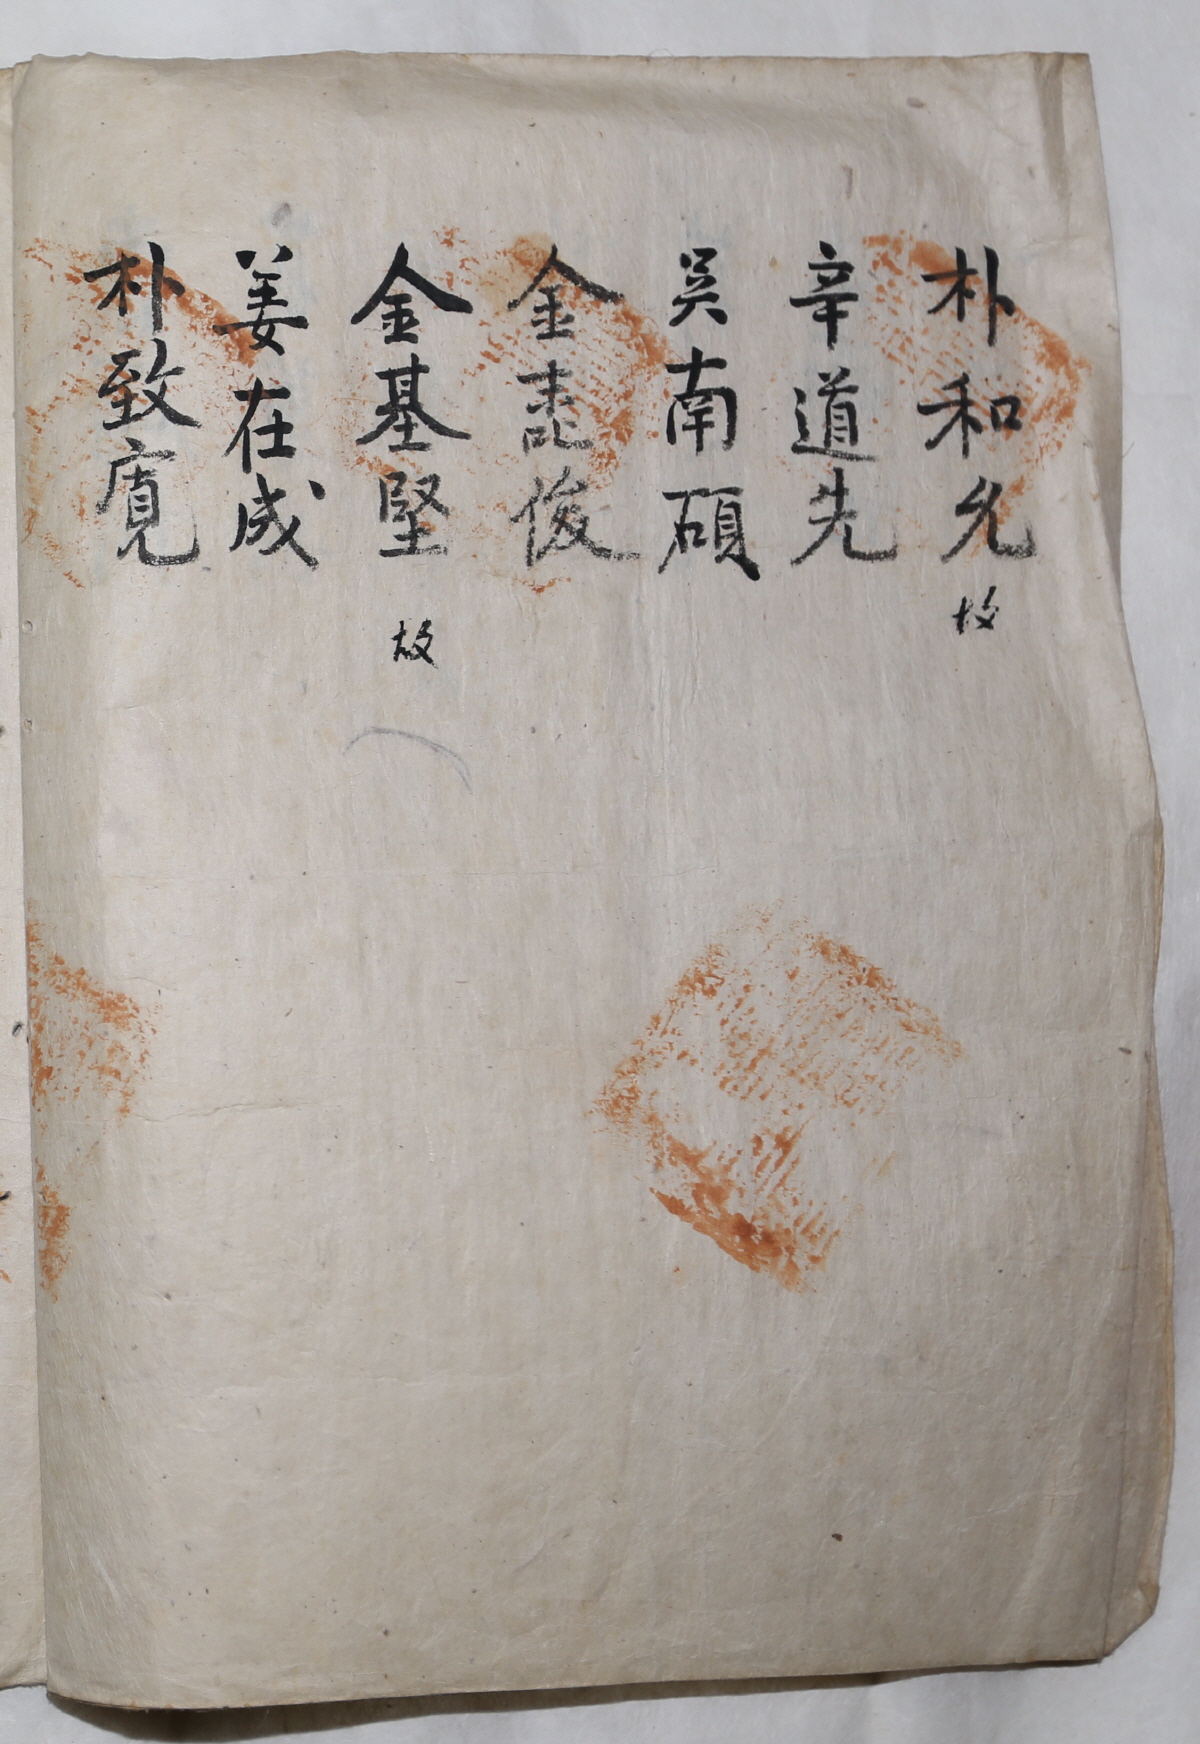 朴和允 故
辛道先
吳南碩
金 俊
金基堅 故
姜在成
朴致寬